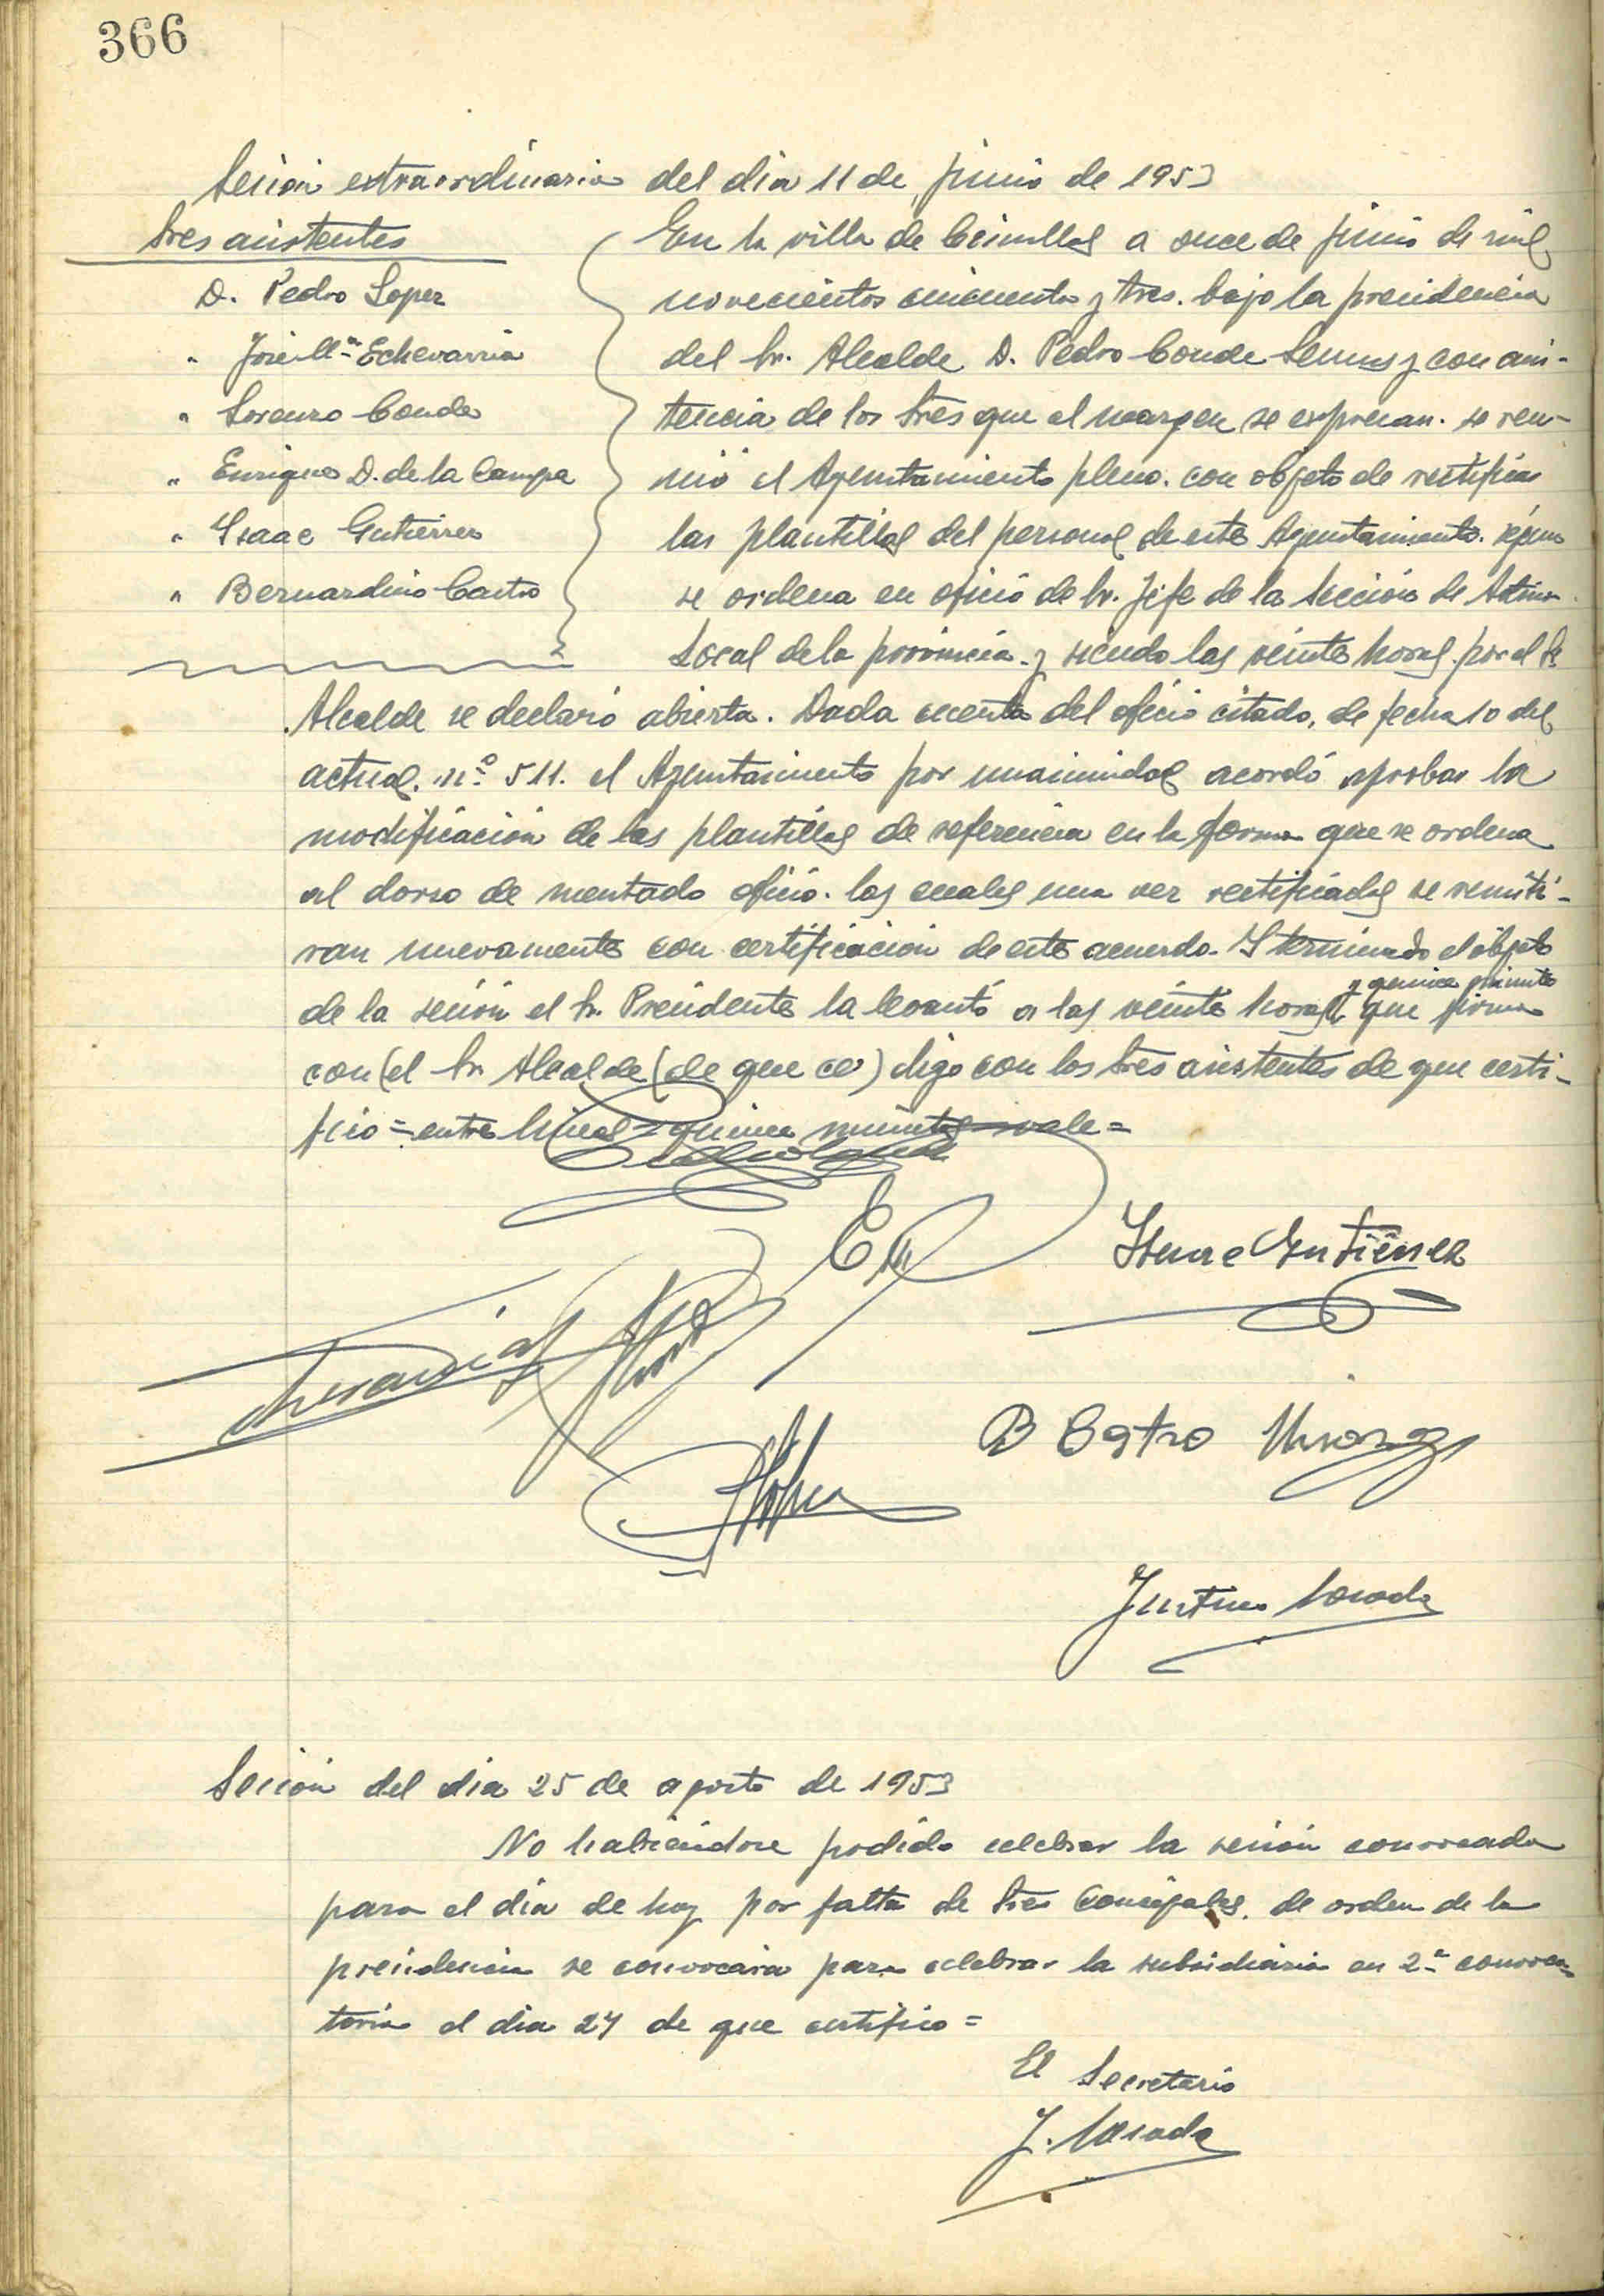 366
Sesión extraordinaria del dia 11 de junio de 1953
Sres asistentes
D. Pedro Lopez
" José Mª Echevarria
" Lorenzo Conde
" Enrique D. de la Campa
" Isaac Gutierrez
" Bernardino Castro
En la villa de a once de junio de mil
novecientos cincuenta y tres. bajo la presidencia
del Sr. Alcalde D. Pedro Conde y con asis-
tencia de los Sres que al margen se expresan. se reu-
nió el Ayuntamiento pleno. con objeto de rectificar
las plantillas del personal de este Ayuntamiento. segun
se ordena en oficio de Sr. Jefe de la Sección de Admon
Local de la provincia. y siendo las veinte horas. por el Sr
Alcalde se declaró abierta. Dada cuenta del oficio citado, de fecha 10 del
actual. nº 511. el Ayuntamiento por unanimidad acordó aprobar la
modificación de las plantillas de referencia en la forma que se ordena
al dorso de mentado oficio. las cuales una vez rectificadas se remiti-
ran nuevamente con certificación de este acuerdo. Y terminado el objeto
de la sesión el Sr. Presidente la levantó a las veinte horas y quince minutos que firma
con (el Sr Alcalde (de que ce) digo con los Sres asistentes de que certi-
fico = entre lineas = quince minutos = vale =
Isaac Gutiérrez
B Castro
Justino Losada
Sesión del dia 25 de agosto de 1953
No habiéndose podido celebrar la sesión convocada
para el día de hoy por falta de Sres Concejales, de orden de la
presidencia se convocara para celebrar la subsidiaria en 2ª convoca-
toria el dia 27 de que certifico =
El Secretario
J. Losada